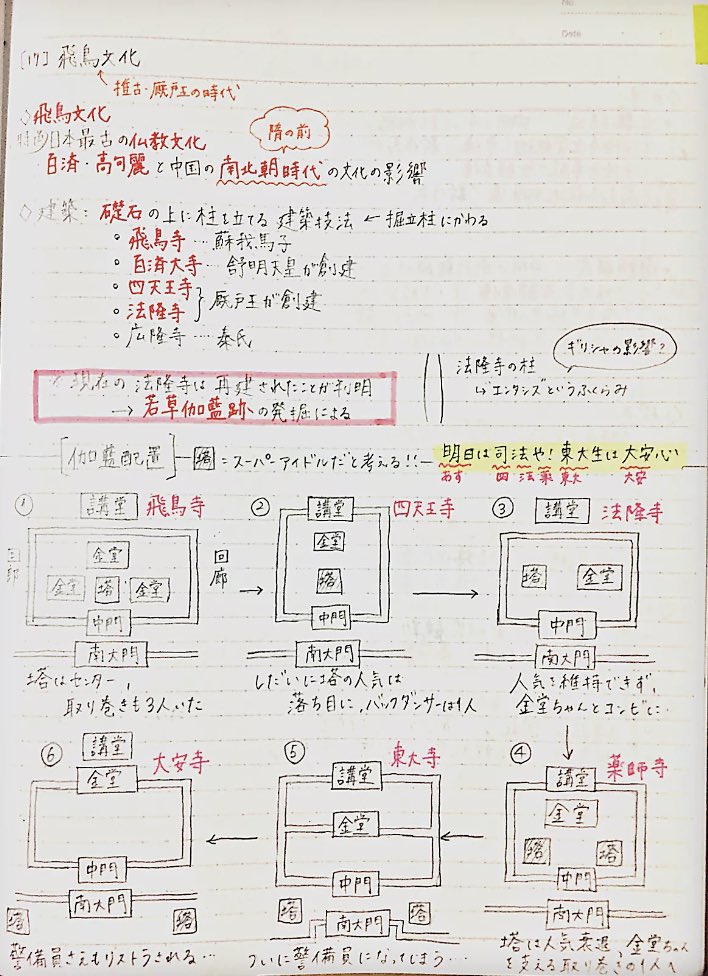 No.
Date
[17] 飛鳥文化
推古・厩戸王の時代
◇飛鳥文化
日本最古の仏教文化
隋の前
百済・高句麗と中国の南北朝時代の文化の影響
◇建築:礎石の上に柱を立てる建築技法 ← 掘立柱にかわる
・飛鳥寺…蘇我馬子
・百済大寺…舒明天皇が創建
・四天王寺
・法隆寺 } 厩戸王が創建
・広隆寺…秦氏
ギリシャの影響?
法隆寺の柱
↳エンタシスというふくらみ
現在の法隆寺は再建されたことが判明
→ 若草伽藍跡の発掘による
[伽藍配置] 塔=スーパーアイドルだと考える!!
明日は司法や!東大生は大安心
あす 四 法 薬 東大 大安
① 講堂 飛鳥寺
回廊
金堂
金堂 塔 金堂
中門
南大門
回廊
塔はセンター、
取り巻きも3人いた
② 講堂 四天王寺
金堂
塔
中門
南大門
しだいに塔の人気は
落ち目に、バックダンサーは1人
③ 講堂 法隆寺
塔 金堂
中門
南大門
人気を維持できず、
金堂ちゃんとコンビに…
④ 薬師寺
講堂
金堂
塔 塔
中門
南大門
塔は人気衰退、金堂ちゃん
を支える取り巻きの1人へ
⑤ 東大寺
講堂
金堂
中門
塔 南大門 塔
ついに警備員になってしまう…
⑥ 講堂 大安寺
金堂
中門
南大門
塔 塔
警備員さえもリストラされる…